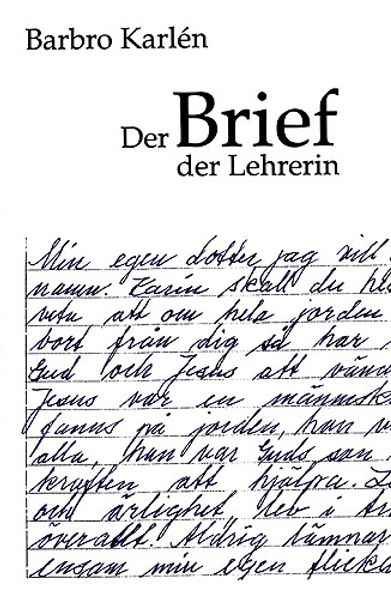 Barbro Karlén
Der Brief
der Lehrerin
Min egen dotter jag vill
namn. Karin skall du
veta att om hela jorden
bort från dig så har
Gud och Jesus att vända
Jesus var en människa
fanns på jorden, han
alla, han var Guds son
kraften att hjälpa.
och ärlighet lev i
överallt. Aldrig lämnar
ensam min egen flicka